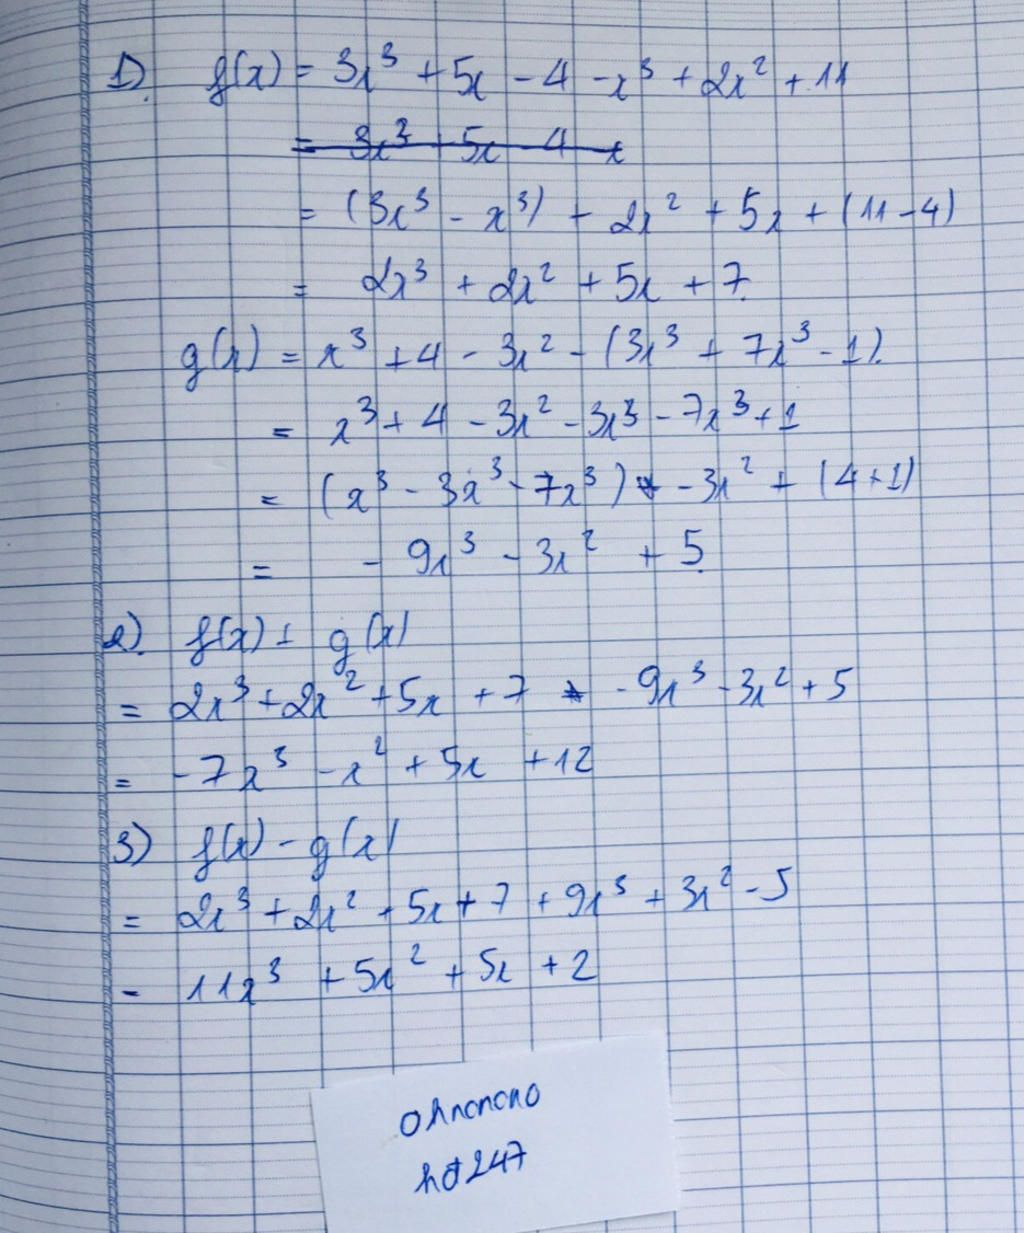 1) f(x) = 3x³ + 5x - 4 - x³ + 2x² + 11
= 3x³ + 5x - 4 - x
= (3x³ - x³) + 2x² + 5x + (11 - 4)
= 2x³ + 2x² + 5x + 7.
g(x) = x³ + 4 - 3x² - (3x³ + 7x³ - 1).
= x³ + 4 - 3x² - 3x³ - 7x³ + 1
= (x³ - 3x³ - 7x³) - 3x² + (4 + 1)
= - 9x³ - 3x² + 5.
2). f(x) + g(x)
= 2x³ + 2x² + 5x + 7 - 9x³ - 3x² + 5
= - 7x³ - x² + 5x + 12
3) f(x) - g(x)
= 2x³ + 2x² + 5x + 7 + 9x³ + 3x² - 5
= 11x³ + 5x² + 5x + 2
ohnonono
hđ247